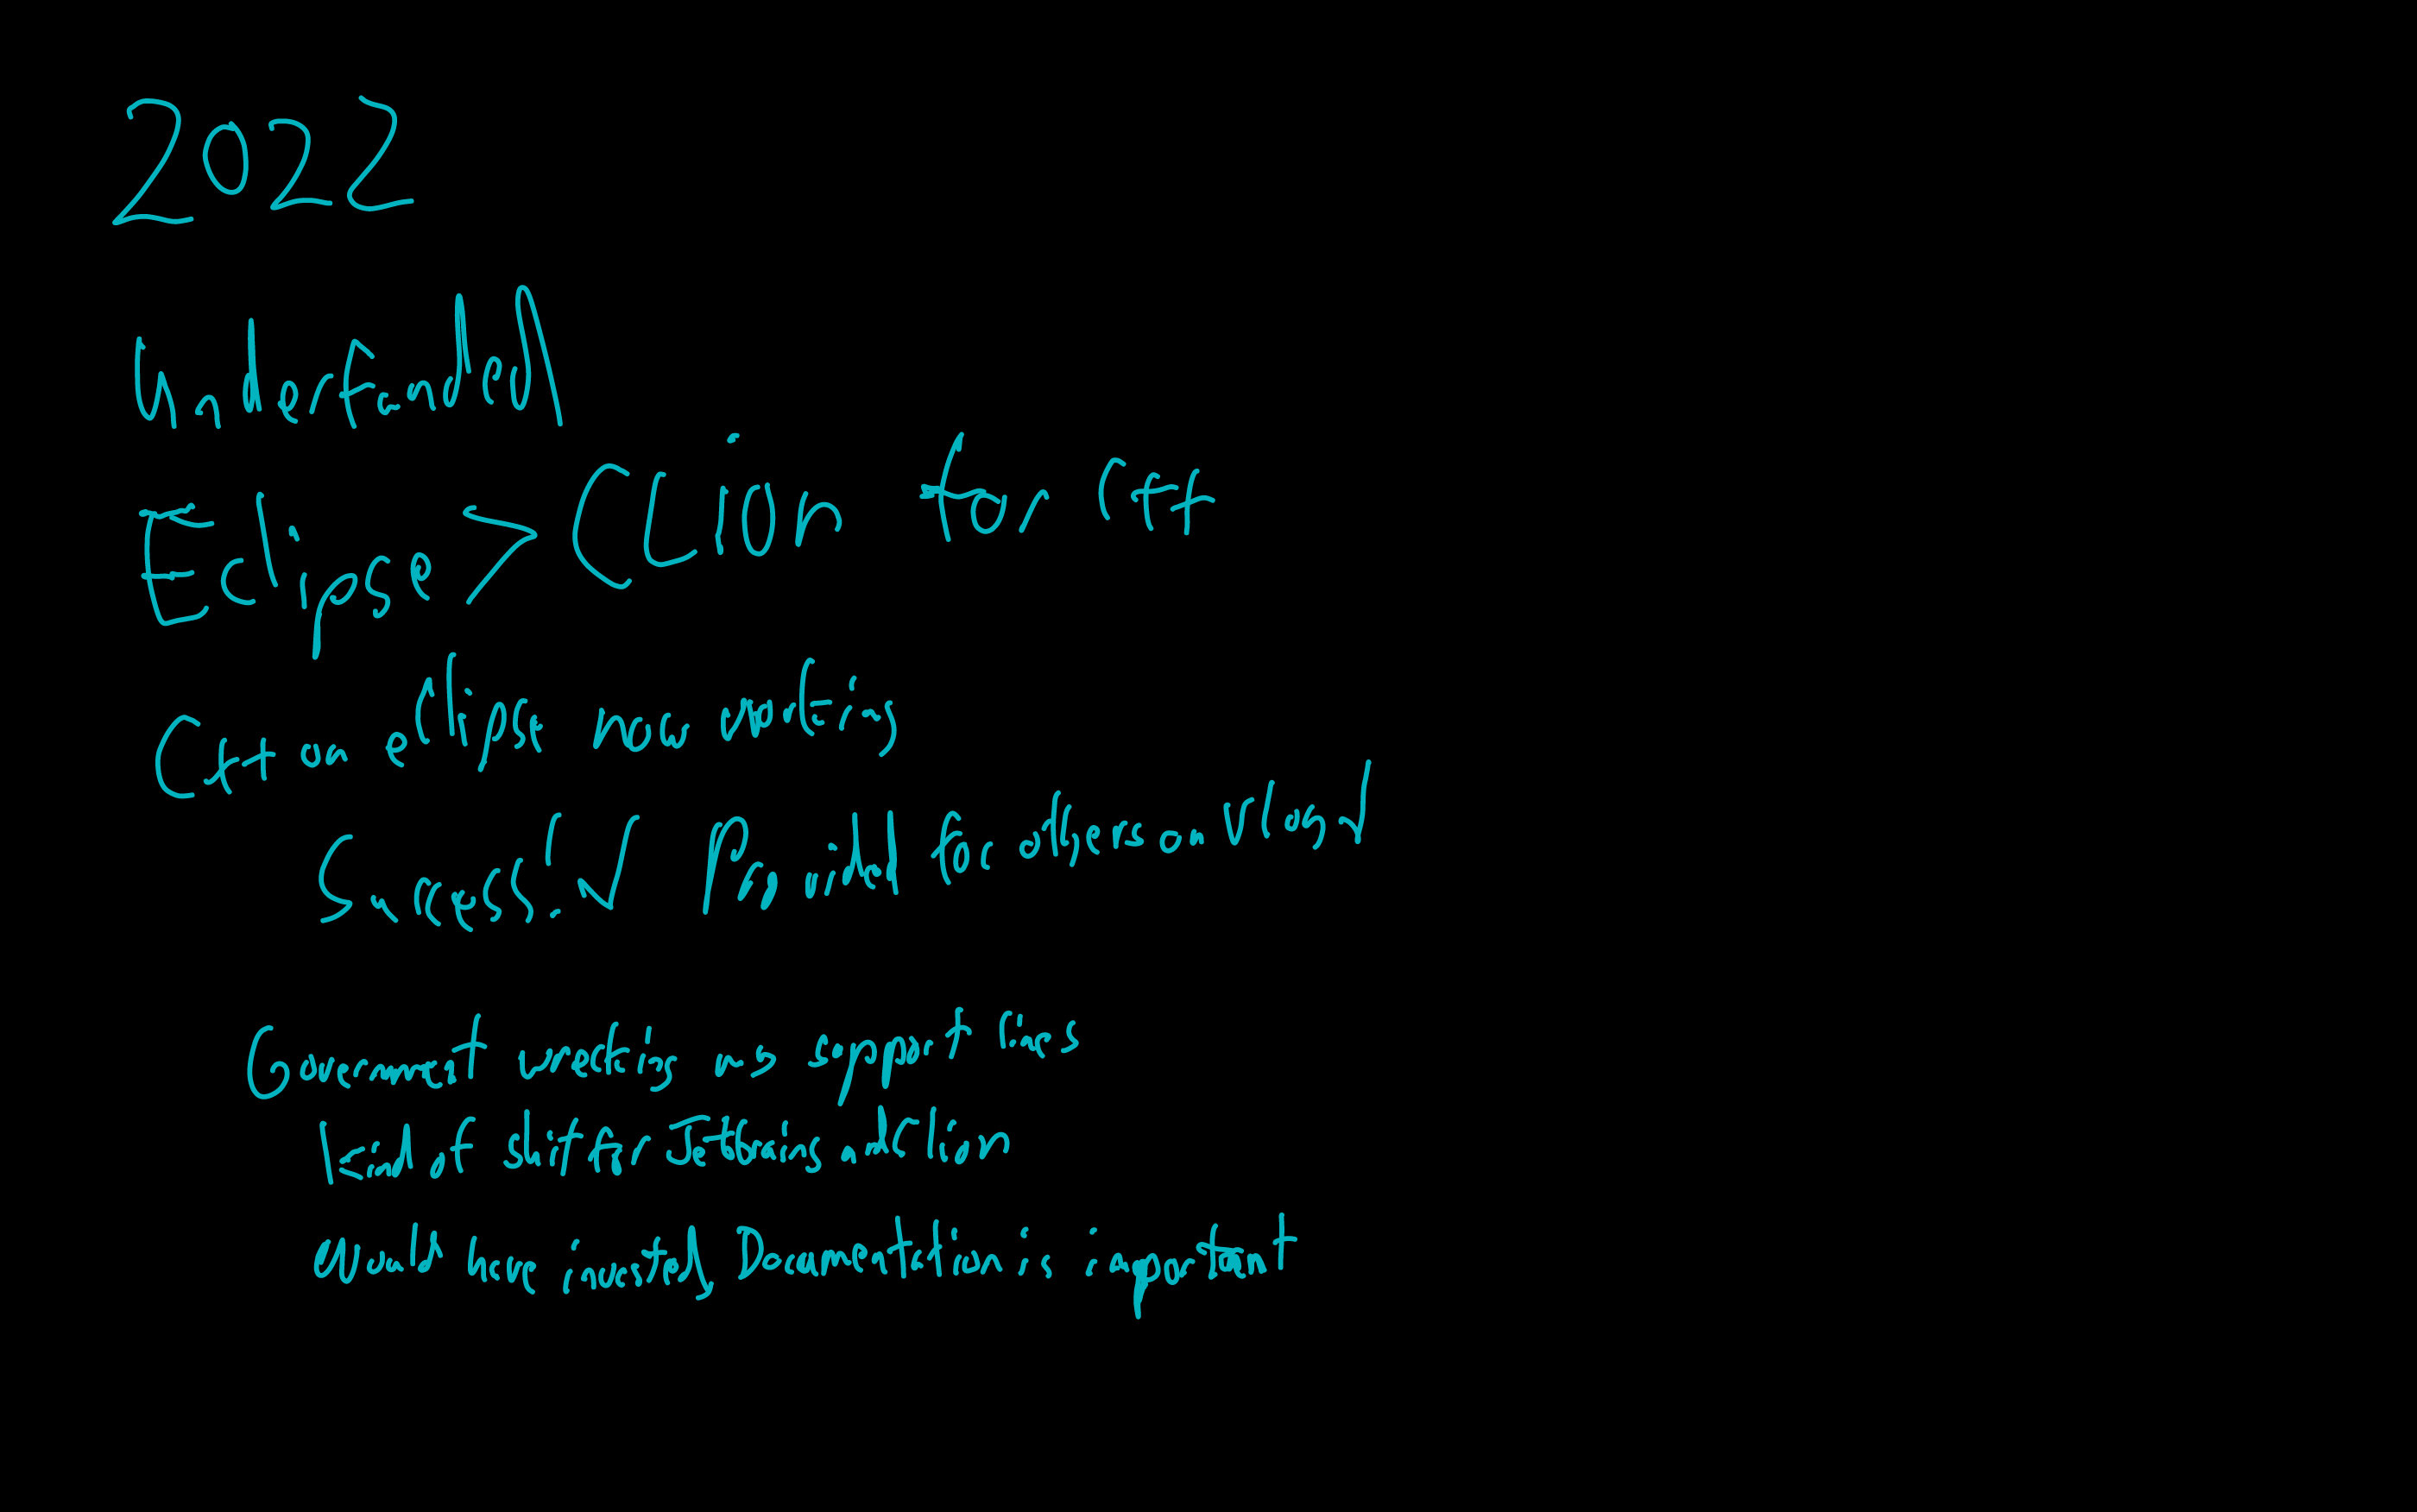 2022
Underfunded
Eclipse > CLion for C++
C++ on eclipse now working
Success! ✓ Provided for others on Vlog ✓
Government wrecking us support lines
Kind of shit for Jetbrains and Clion
Would have invested, Documentation is important